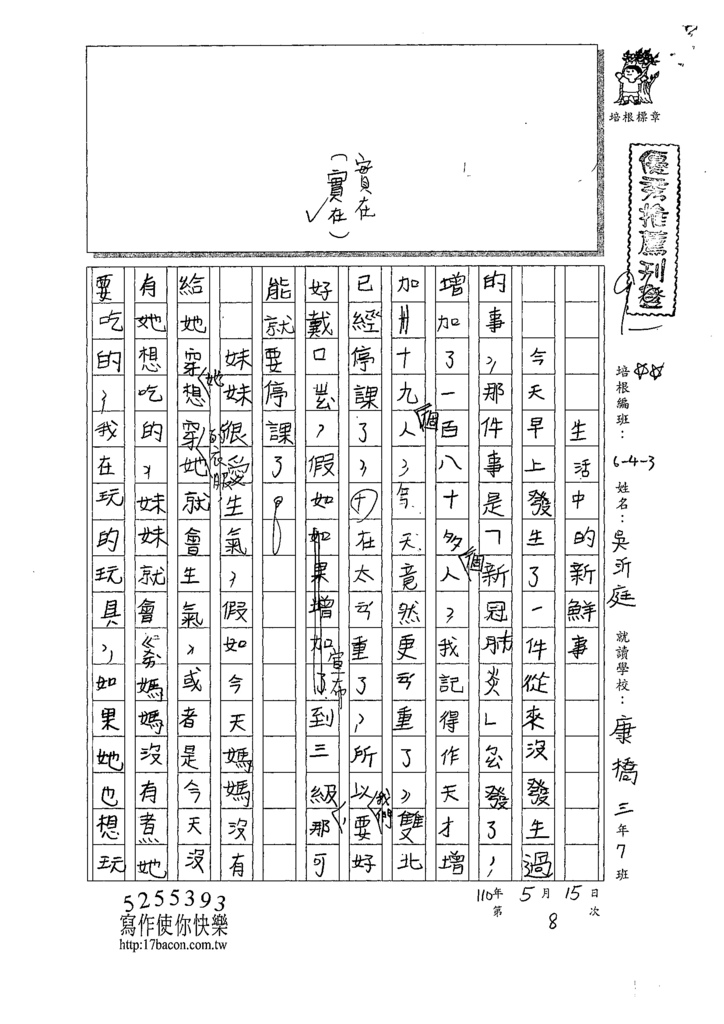 培根標章
優秀推薦刊登
培根編班：6-4-3 姓名：吳沂庭 就讀學校：康橋 三年7班
110年 5月 15日
第 8 次
實在
（實在）
生活中的新鮮事
今天早上發生了一件從來沒發生過
的事，那件事是「新冠肺炎」忽發了，
增加了一百八十多個人，我記得作天才增
加廿十九個人，今天竟然更重了，雙北
已經停課了，在太重了，所以我們要好
好戴口，假如如果增加了宣布到三級，那可
能就要停課了。
妹妹很愛生氣，假如今天媽媽沒有
給她穿她想穿的衣服，她就會生氣，或者是今天沒
有她想吃的，妹妹就會媽媽沒有煮她
要吃的，我在玩的玩具，如果她也想玩
5255393
寫作使你快樂
http:17bacon.com.tw